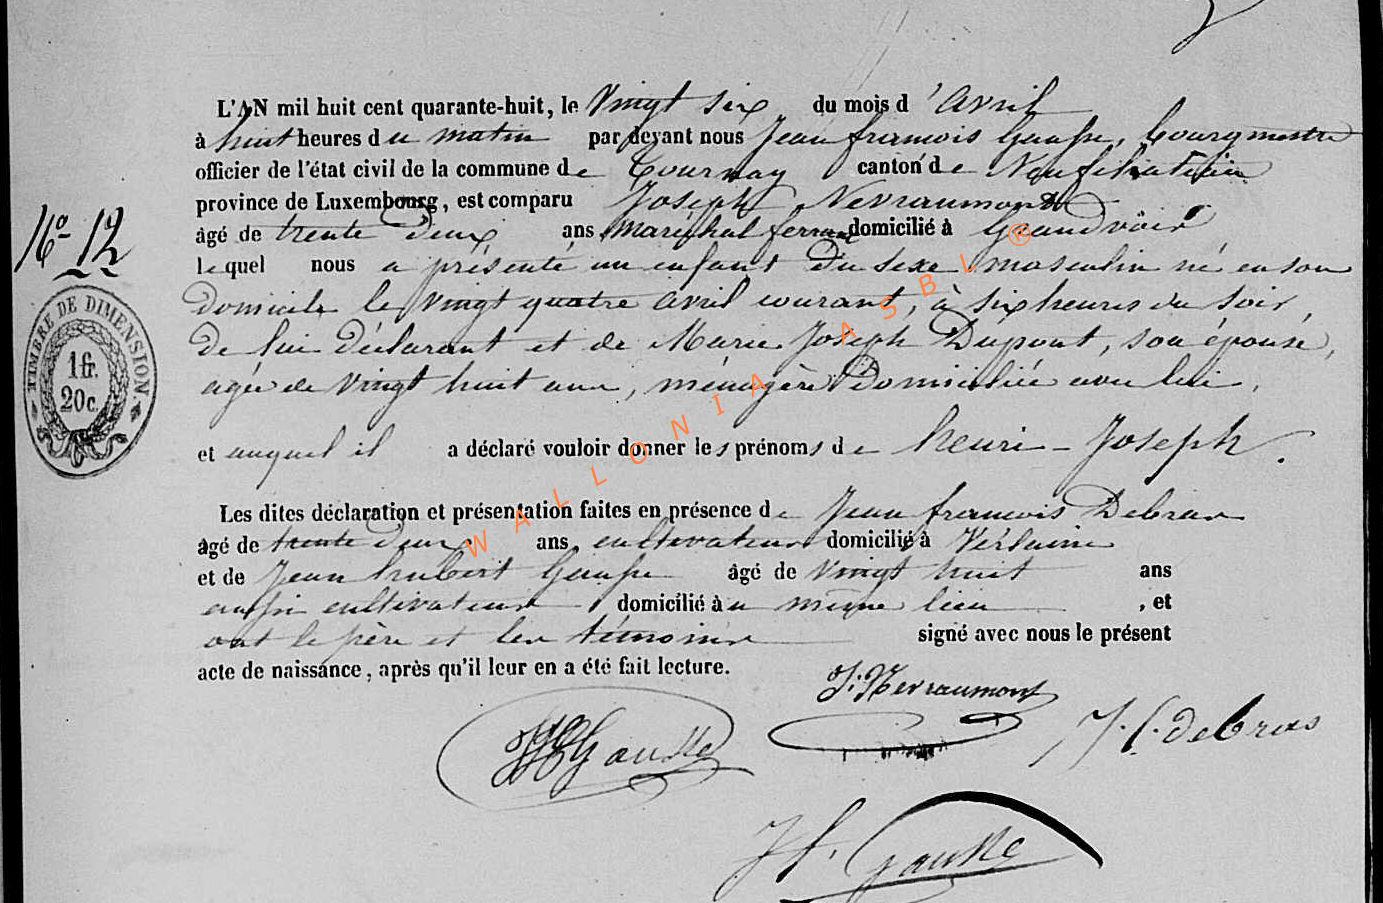 L'AN mil huit cent quarante-huit, le Vingt six du mois d'Avril
à huit heures du matin par devant nous Jean françois Gausse, bourgmestre
officier de l'état civil de la commune de Tournay canton de Neufchateau
province de Luxembourg, est comparu Joseph Nevraumont
âgé de trente deux ans, maréchal ferrant domicilié à Grandvoir
N° 12
lequel nous a présenté un enfant du sexe masculin né en son
domicile le vingt quatre avril courant, à six heures du soir,
de lui déclarant et de Marie Joseph Dupont, son épouse,
agée de vingt huit ans, ménagère domiciliée avec lui,
TIMBRE DE DIMENSION.
1 fr.
20 c.
et auquel il a déclaré vouloir donner les prénoms de henri-Joseph.
Les dites déclaration et présentation faites en présence de Jean françois Debras
âgé de trente deux ans, cultivateur domicilié à Verlaine
et de Jean hubert Gausse âgé de vingt huit ans
aussi cultivateur domicilié au même lieu, et
ont le père et les témoins signé avec nous le présent
acte de naissance, après qu'il leur en a été fait lecture.
J. Nevraumont
Gausse
J. f. debras
J f. Gausse
WALLONIA ASBL ®